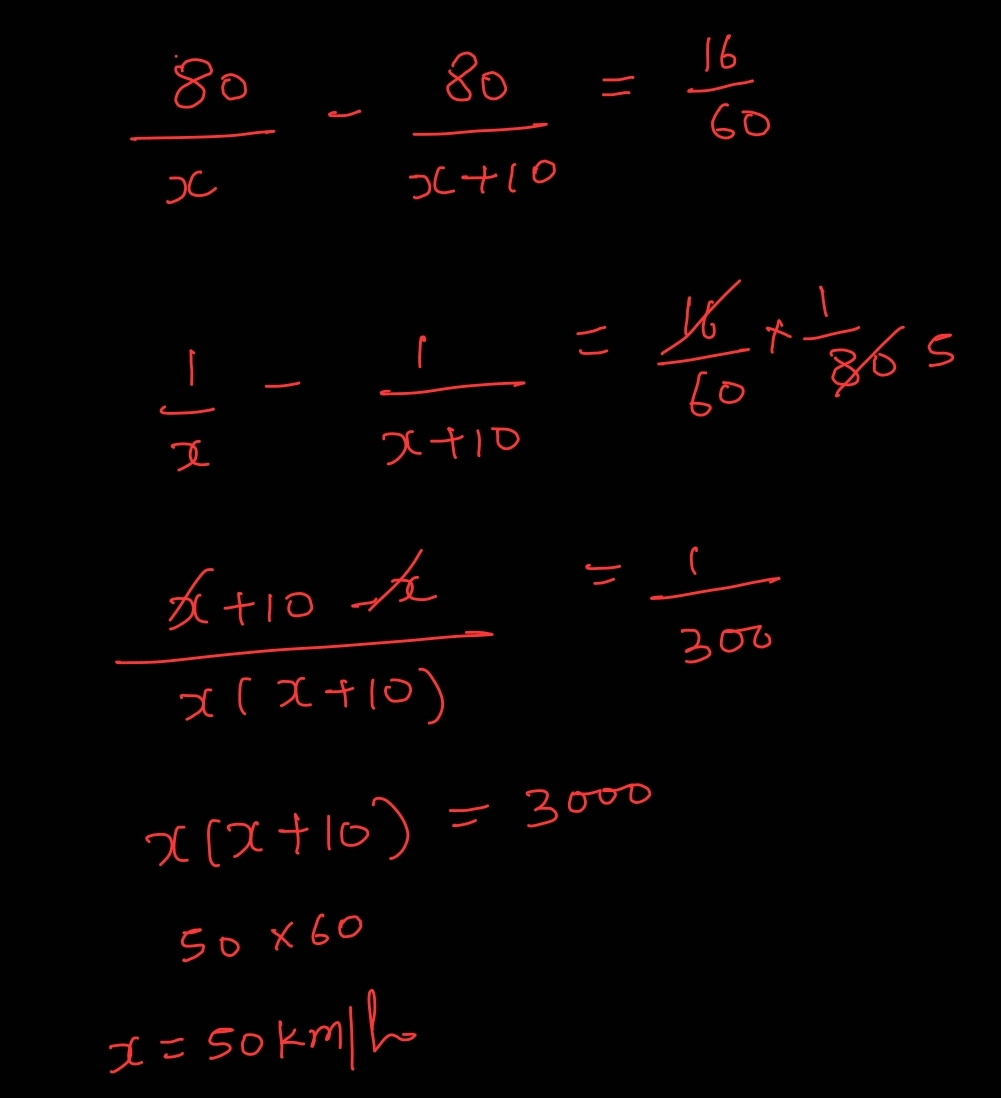 80/x - 80/x+10 = 16/60
1/x - 1/x+10 = 16/60 × 1/80 5
x+10-x/x(x+10) = 1/300
x(x+10) = 3000
50 × 60
x = 50 km/h